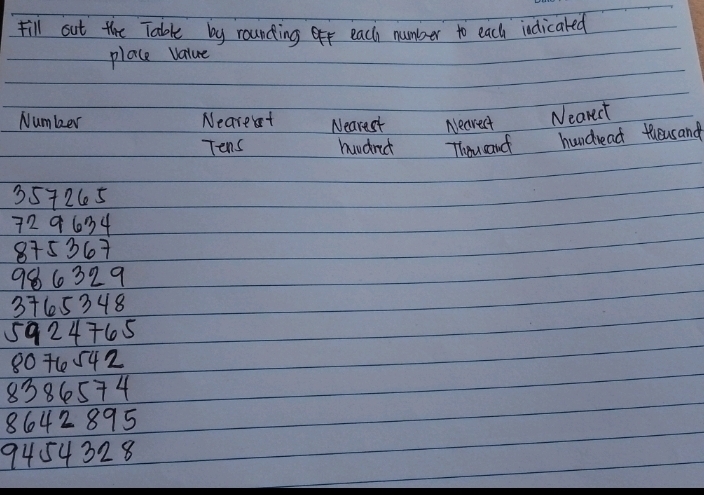 Fill out the Table by rounding OFF each number to each indicated
place Value
Number Nearest Nearest Nearest Nearest
Tens hundred Thousand hundread thousand
357265
729634
875367
986329
3765348
5924765
8076542
8386574
8642895
9454328